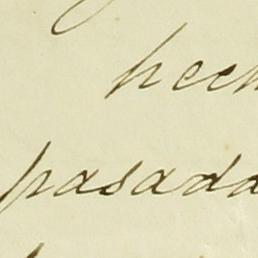 hech
pasada